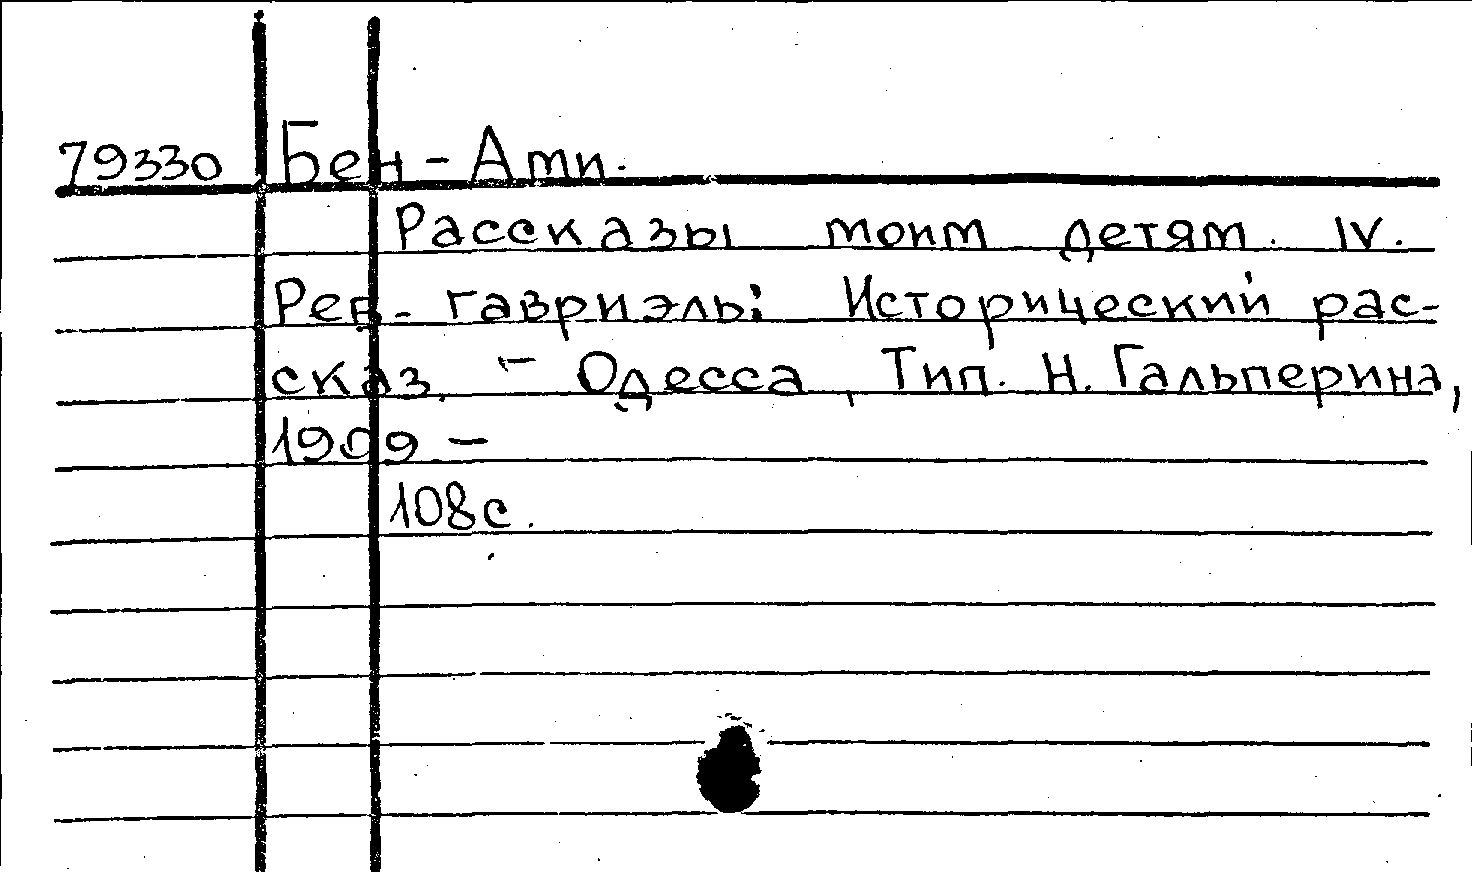 79330 Бен-Ами.
Рассказы моим детям. IV.
Реб-Гавриэль: Исторический рас-
сказ. - Одесса, Тип. Н. Гальперина,
1909 -
108 с.